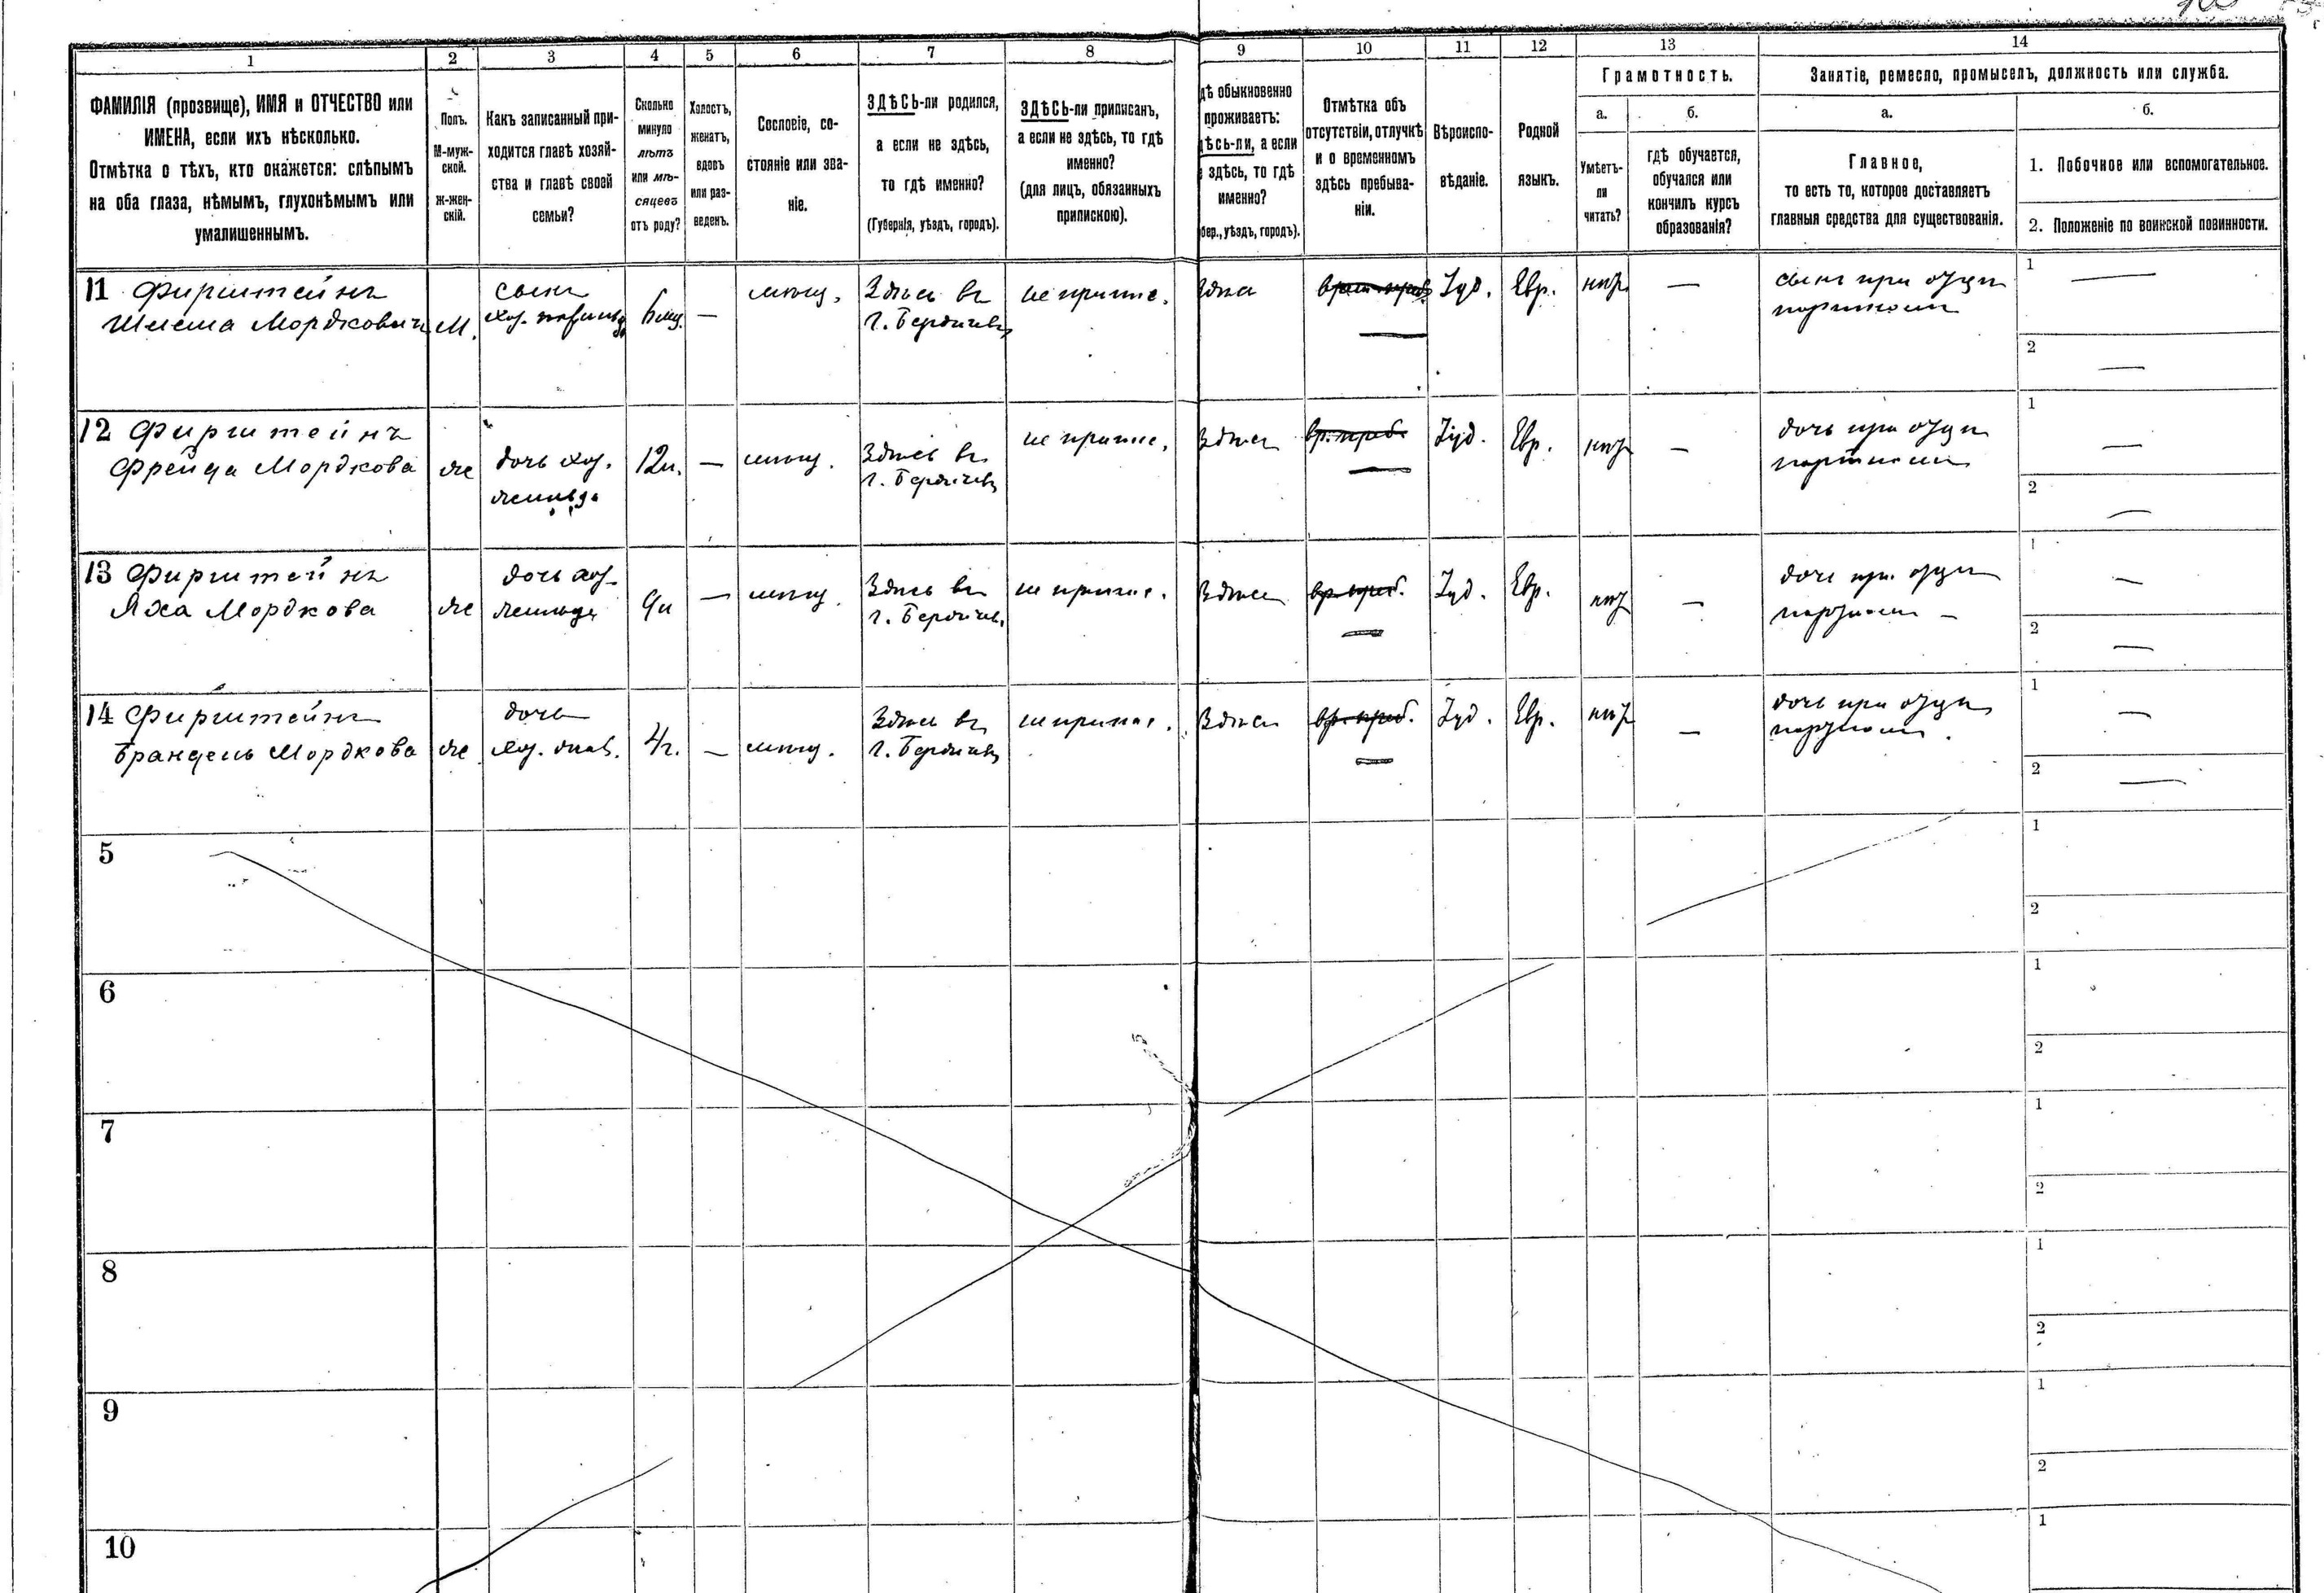 1 2 3 4 5 6 7 8 9 10 11 12 13 14
ФАМИЛІЯ (прозвище), ИМЯ и ОТЧЕСТВО или
ИМЕНА, если ихъ нѣсколько.
Отмѣтка о тѣхъ, кто окажется: слѣпымъ
на оба глаза, нѣмымъ, глухонѣмымъ или
умалишеннымъ.
Полъ.
М-муж-
ской.
Ж-жен-
скій.
Какъ записанный при-
ходится главѣ хозяй-
ства и главѣ своей
семьи?
Сколько
минуло
лѣтъ
или мѣ-
сяцевъ
отъ роду?
Холостъ,
женатъ,
вдовъ
или раз-
веденъ.
Сословіе, со-
стояніе или зва-
ніе.
ЗДѢСЬ-ли родился,
а если не здѣсь,
то гдѣ именно?
(Губернія, уѣздъ, городъ).
ЗДѢСЬ-ли приписанъ,
а если не здѣсь, то гдѣ
именно?
(для лицъ, обязанныхъ
припискою).
дѣ обыкновенно
проживаетъ:
ѣсь-ли, а если
здѣсь, то гдѣ
именно?
бер., уѣздъ, городъ).
Отмѣтка объ
отсутствіи, отлучкѣ
и о временномъ
здѣсь пребыва-
ніи.
Вѣроиспо-
вѣданіе.
Родной
языкъ.
Грамотность.
а.
Умѣетъ-
ли
читать?
б.
гдѣ обучается,
обучался или
кончилъ курсъ
образованія?
Занятіе, ремесло, промыселъ, должность или служба.
а.
Главное,
то есть то, которое доставляетъ
главныя средства для существованія.
б.
1. Побочное или вспомогательное.
2. Положеніе по воинской повинности.
11 Фирштейнъ
Мордковичъ
М.
сынъ
хоз.
—
мѣщ.
Здѣсь въ
г. Бердичевѣ
не припис.
Здѣсь
Іуд.
Евр.
нѣтъ
—
сынъ при отцѣ
портномъ
1 —
2 —
12 Фирштейнъ
Фрейда Мордкова
ж
дочь хоз.
12л.
—
мѣщ.
Здѣсь въ
г. Бердичевѣ
не припис.
Здѣсь
вр. преб.
Іуд.
Евр.
нѣтъ
—
дочь при отцѣ
портномъ
1 —
2 —
13 Фирштейнъ
Яха Мордкова
ж
дочь хоз.
9л
—
мѣщ.
Здѣсь въ
г. Бердичев.
не припис.
Здѣсь
вр. преб.
Іуд.
Евр.
нѣтъ
—
дочь при отцѣ
портномъ —
1 —
2 —
14 Фирштейнъ
Брандель Мордкова
ж
дочь
хоз.
4г.
—
мѣщ.
Здѣсь въ
г. Бердичевѣ
не припис.
Здѣсь
вр. преб.
Іуд.
Евр.
нѣтъ
—
дочь при отцѣ
портномъ.
1 —
2 —
5
1
2
6
1
2
7
1
2
8
1
2
9
1
2
10
1